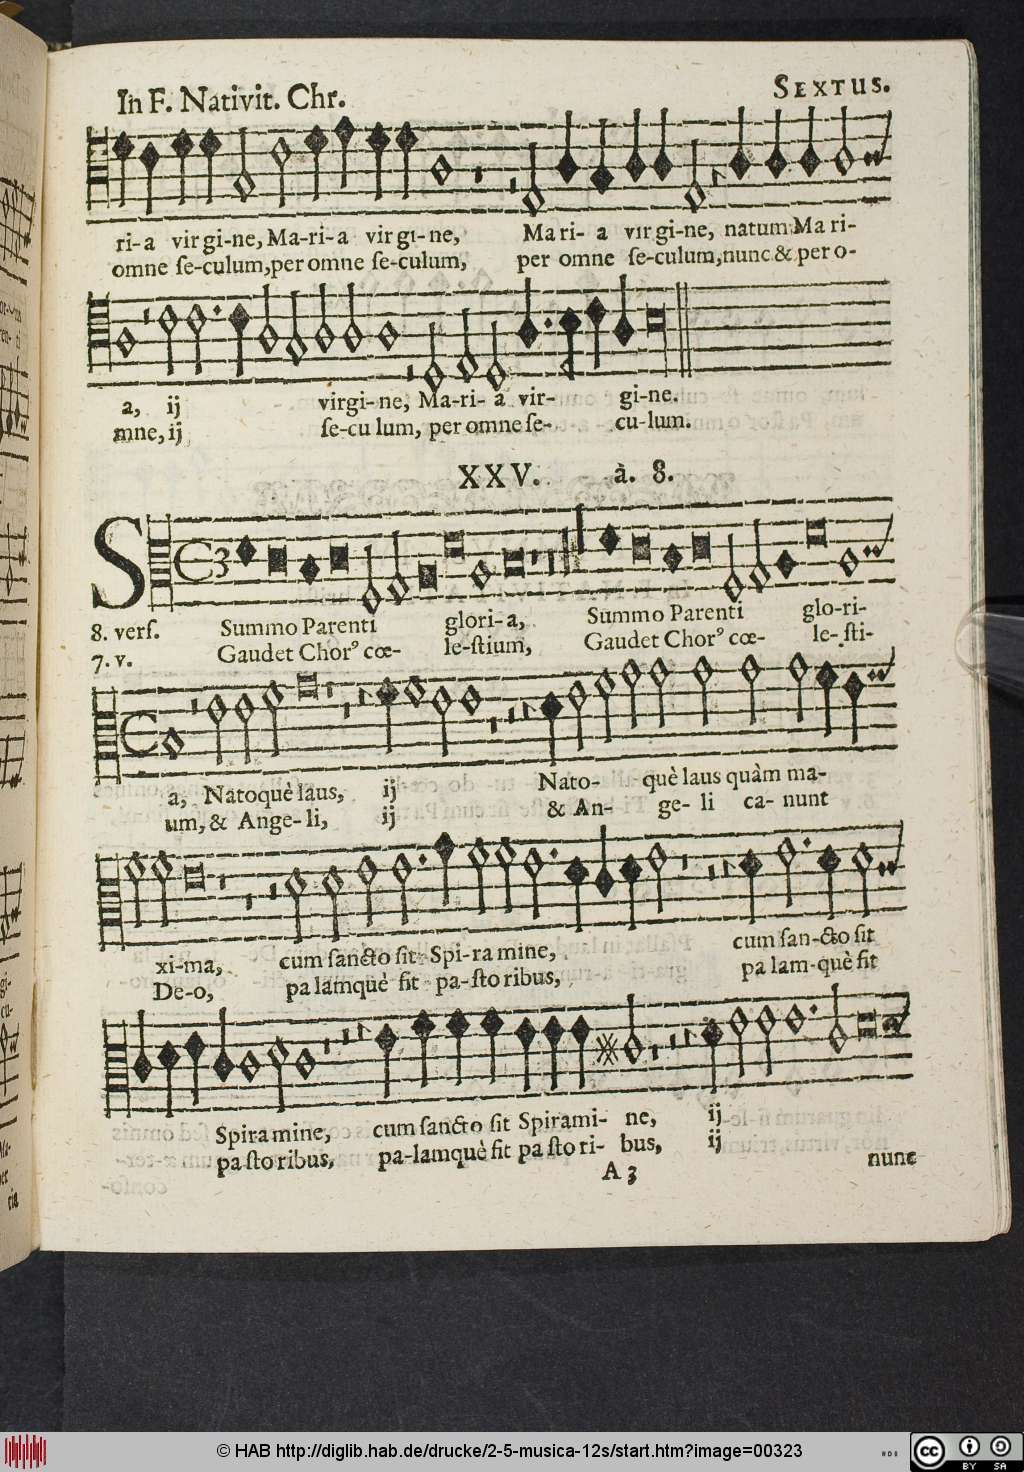 In F. Nativit. Chr.
SEXTUS.
ri-a vir gi-ne, Ma-ri-a vir gi-ne, Ma ri- a vir gi-ne, natum Ma ri-
omne ſe-culum, per omne ſe-culum, per omne ſe-culum, nunc & per o-
a, ij virgi-ne, Ma-ri- a vir- gi-ne.
mne, ij ſe-cu lum, per omne ſe- cu-lum.
XXV. à. 8.
S
8. verſ. Summo Parenti glori-a, Summo Parenti glo-ri-
7. v. Gaudet Chorꝰ cœ- le-ſtium, Gaudet Chorꝰ cœ- le-ſti-
a, Natoquè laus, ij Nato- què laus quàm ma-
um, & Ange-li, ij & An- ge- li ca- nunt
xi-ma, cum ſancto ſit Spi-ra mine, cum ſan-cto ſit
De-o, pa lamquè fit pa-ſto ribus, pa lam-què fit
Spira mine, cum ſancto ſit Spirami- ne, ij
pa ſto ribus, pa-lamquè fit pa ſto ri- bus, ij
nunc
A 3
© HAB http://diglib.hab.de/drucke/2-5-musica-12s/start.htm?image=00323
cc BY SA